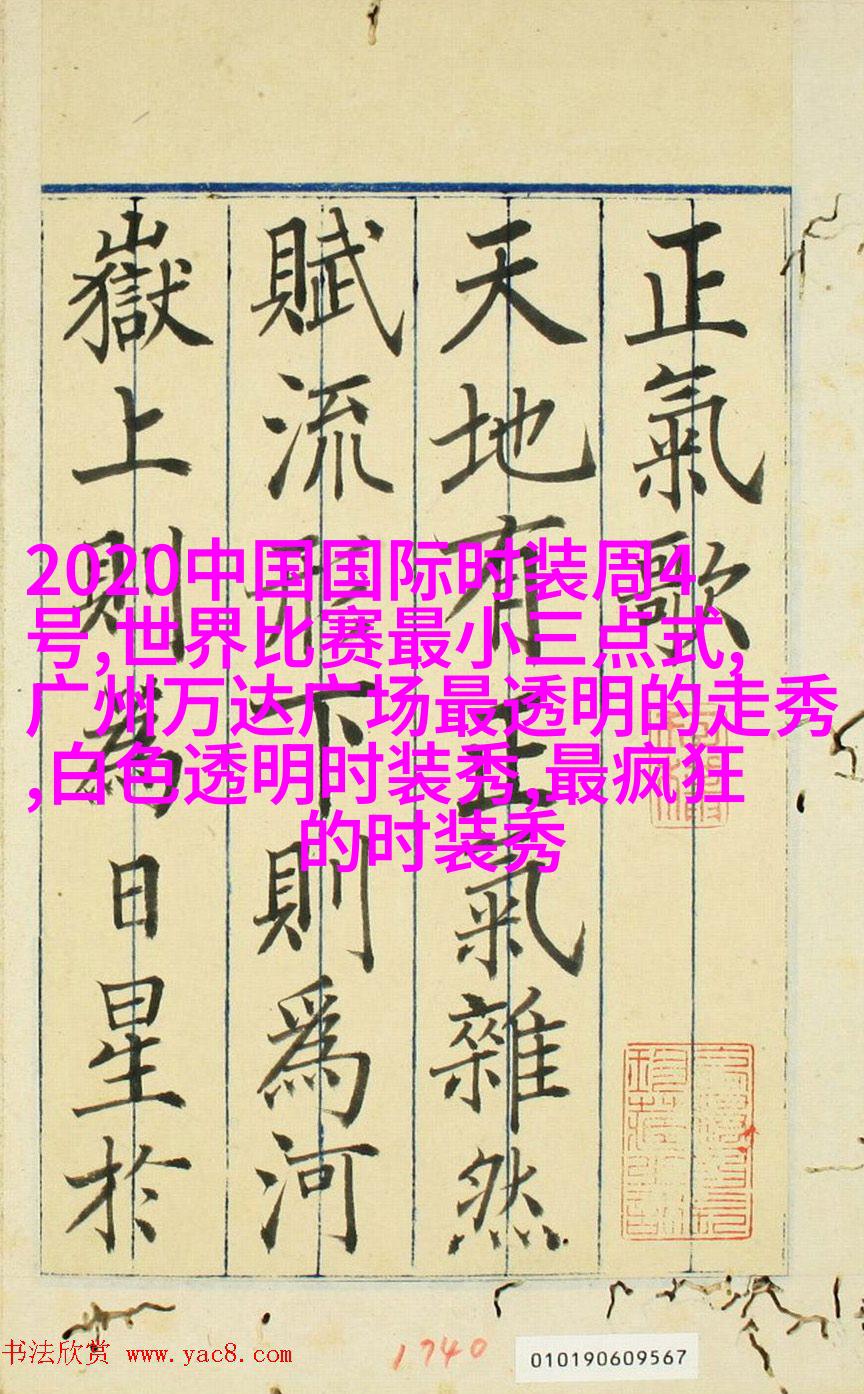 正氣歌
天地有正氣雜然
賦流形下則爲河
嶽上則爲日星於
2020中国国际时装周4
号,世界比赛最小三点式,
广州万达广场最透明的走秀
,白色透明时装秀,最疯狂
的时装秀
书法欣赏 www.yac8.com
1740
010190609567